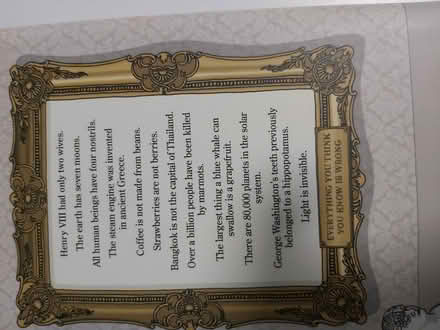 Henry VIII had only two wives.
The earth has seven moons.
All human beings have four nostrils.
The steam engine was invented
in ancient Greece.
Coffee is not made from beans.
Strawberries are not berries.
Bangkok is not the capital of Thailand.
Over a billion people have been killed
by marmots.
The largest thing a blue whale can
swallow is a grapefruit.
There are 80,000 planets in the solar
system.
George Washington's teeth previously
belonged to a hippopotamus.
Light is invisible.
EVERYTHING YOU THINK
YOU KNOW IS WRONG